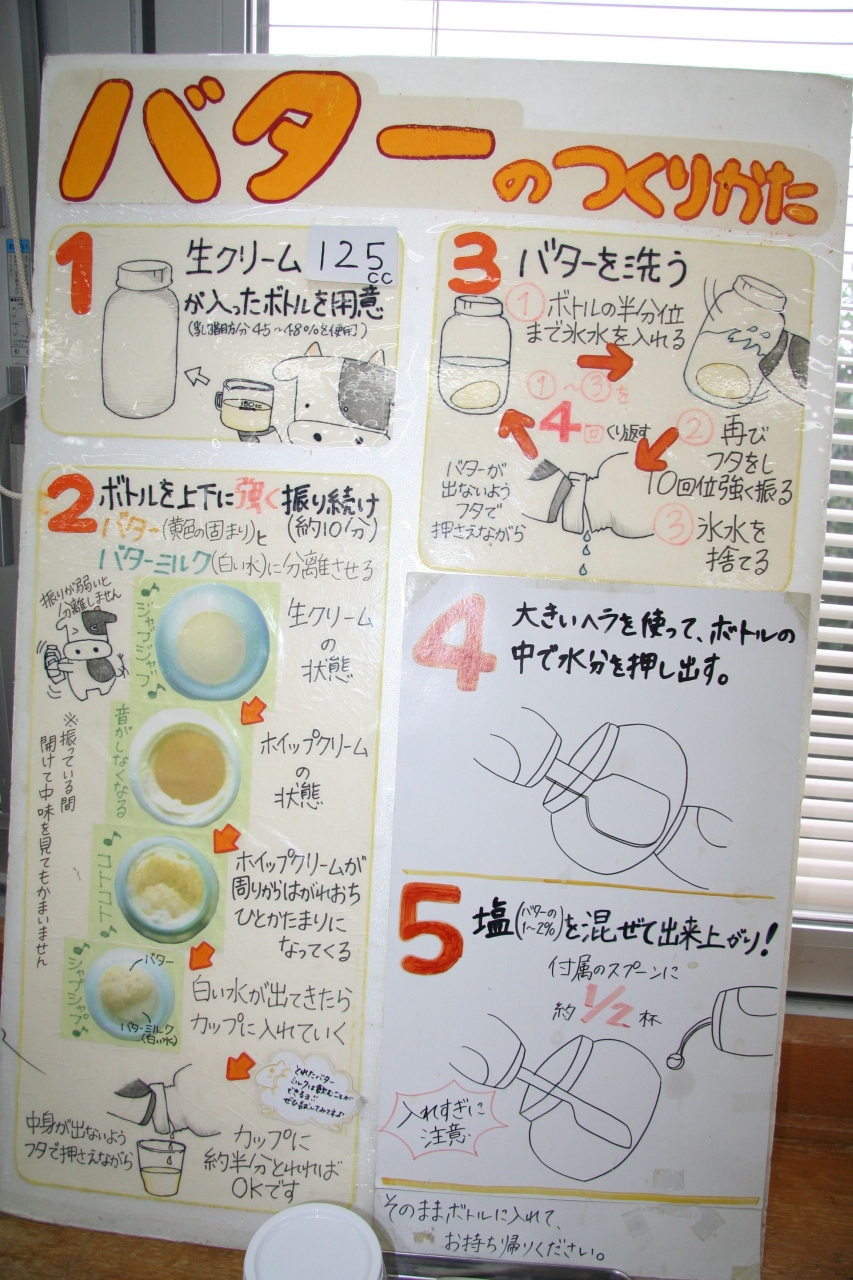 バターのつくりかた
1
生クリーム 125cc
が入ったボトルを用意
(乳脂肪分45～48%を使用)
150cc
2
ボトルを上下に強く振り続け
バター(黄色の固まり)と(約10分)
バターミルク(白い水)に分離させる
振りが弱いと
分離しません
ジャブジャブ
生クリーム
の
状態
音がしなくなる
ホイップクリーム
の
状態
※振っている間
開けて中味を見てもかまいません
コトコト
ホイップクリームが
周りからはがれおち
ひとかたまりに
なってくる
シャプシャプ
バター
バターミルク
(白い水)
白い水が出てきたら
カップに入れていく
とれたバター
ミルクは飲むことが
できるヨ!!
中身が出ないよう
フタで押さえながら
カップに
約半分とれれば
OKです
3
バターを洗う
①ボトルの半分位
まで氷水を入れる
①～③を
4回くり返す
②再び
フタをし
10回位強く振る
バターが
出ないよう
フタで
押さえながら
③氷水を
捨てる
4
大きいヘラを使って、ボトルの
中で水分を押し出す。
5
塩(バターの1～2%)を混ぜて出来上がり!
付属のスプーンに
約1/2杯
入れすぎに
注意
そのままボトルに入れて、
お持ち帰りください。